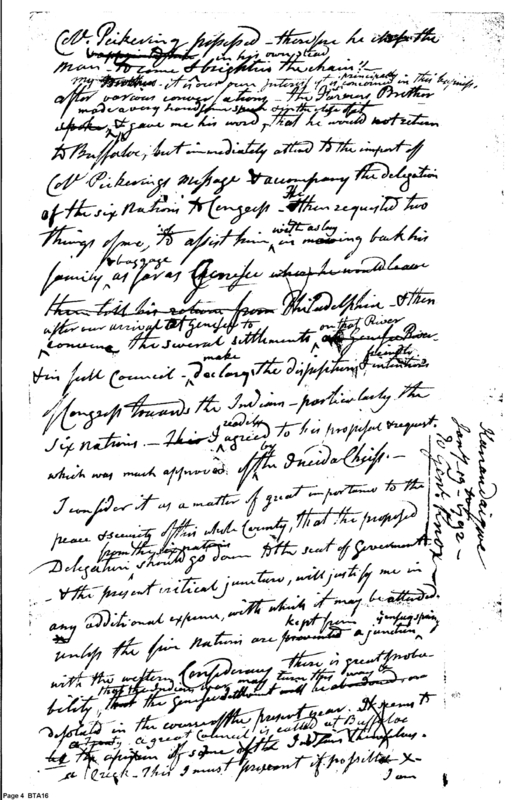 Col. Pickering proposed - therefore he chose the
man - to come & brighten the chain!!
in his own stead
my Brother - it is our own interest
principally concerned in this business,
after various conversations - the Farmers Brother
made a very handsome speech
spoke, & gave me his word, that he would not return
to Buffaloe, but immediately attend to the import of
Col. Pickerings Message & accompany the delegation
of the six Nations to Congress - He then requested two
things of me, to assist him in moving back his
family & baggage as far as Genesee where he would leave
them till his return from Philadelphia - & then
after our arrival at Genesee to
convene the several settlements on that River at Genesee River
& in full Council - make declary the disposition & friendly intentions
of Congress towards the Indians - particularly the
Six Nations. - This I readily agreed to his proposal & request.
which was much approved of by the Oneida Chiefs. -
I consider it as a matter of great importance to the
peace & security of this whole Country, that the proposed
Delegation from the six nations should go down to the seat of Government
- & the present critical juncture, will justify me in
any additional expence, with which it may be attended.
unless the five Nations are kept from prevented a junction
with the western Confederacy there is great proba-
bility, that the Indians may turn this way &
that the Genesee settlement will be abandoned, or
desolated in the course of the present year. It seems to
a great Council is called at Buffaloe
be the opinion of some of the Indians themselves.
Creek - This I must prevent if possible - X -
I am
Kanandaigua
Jany 1792 -
To Genl Knox
Page 4 BTA16